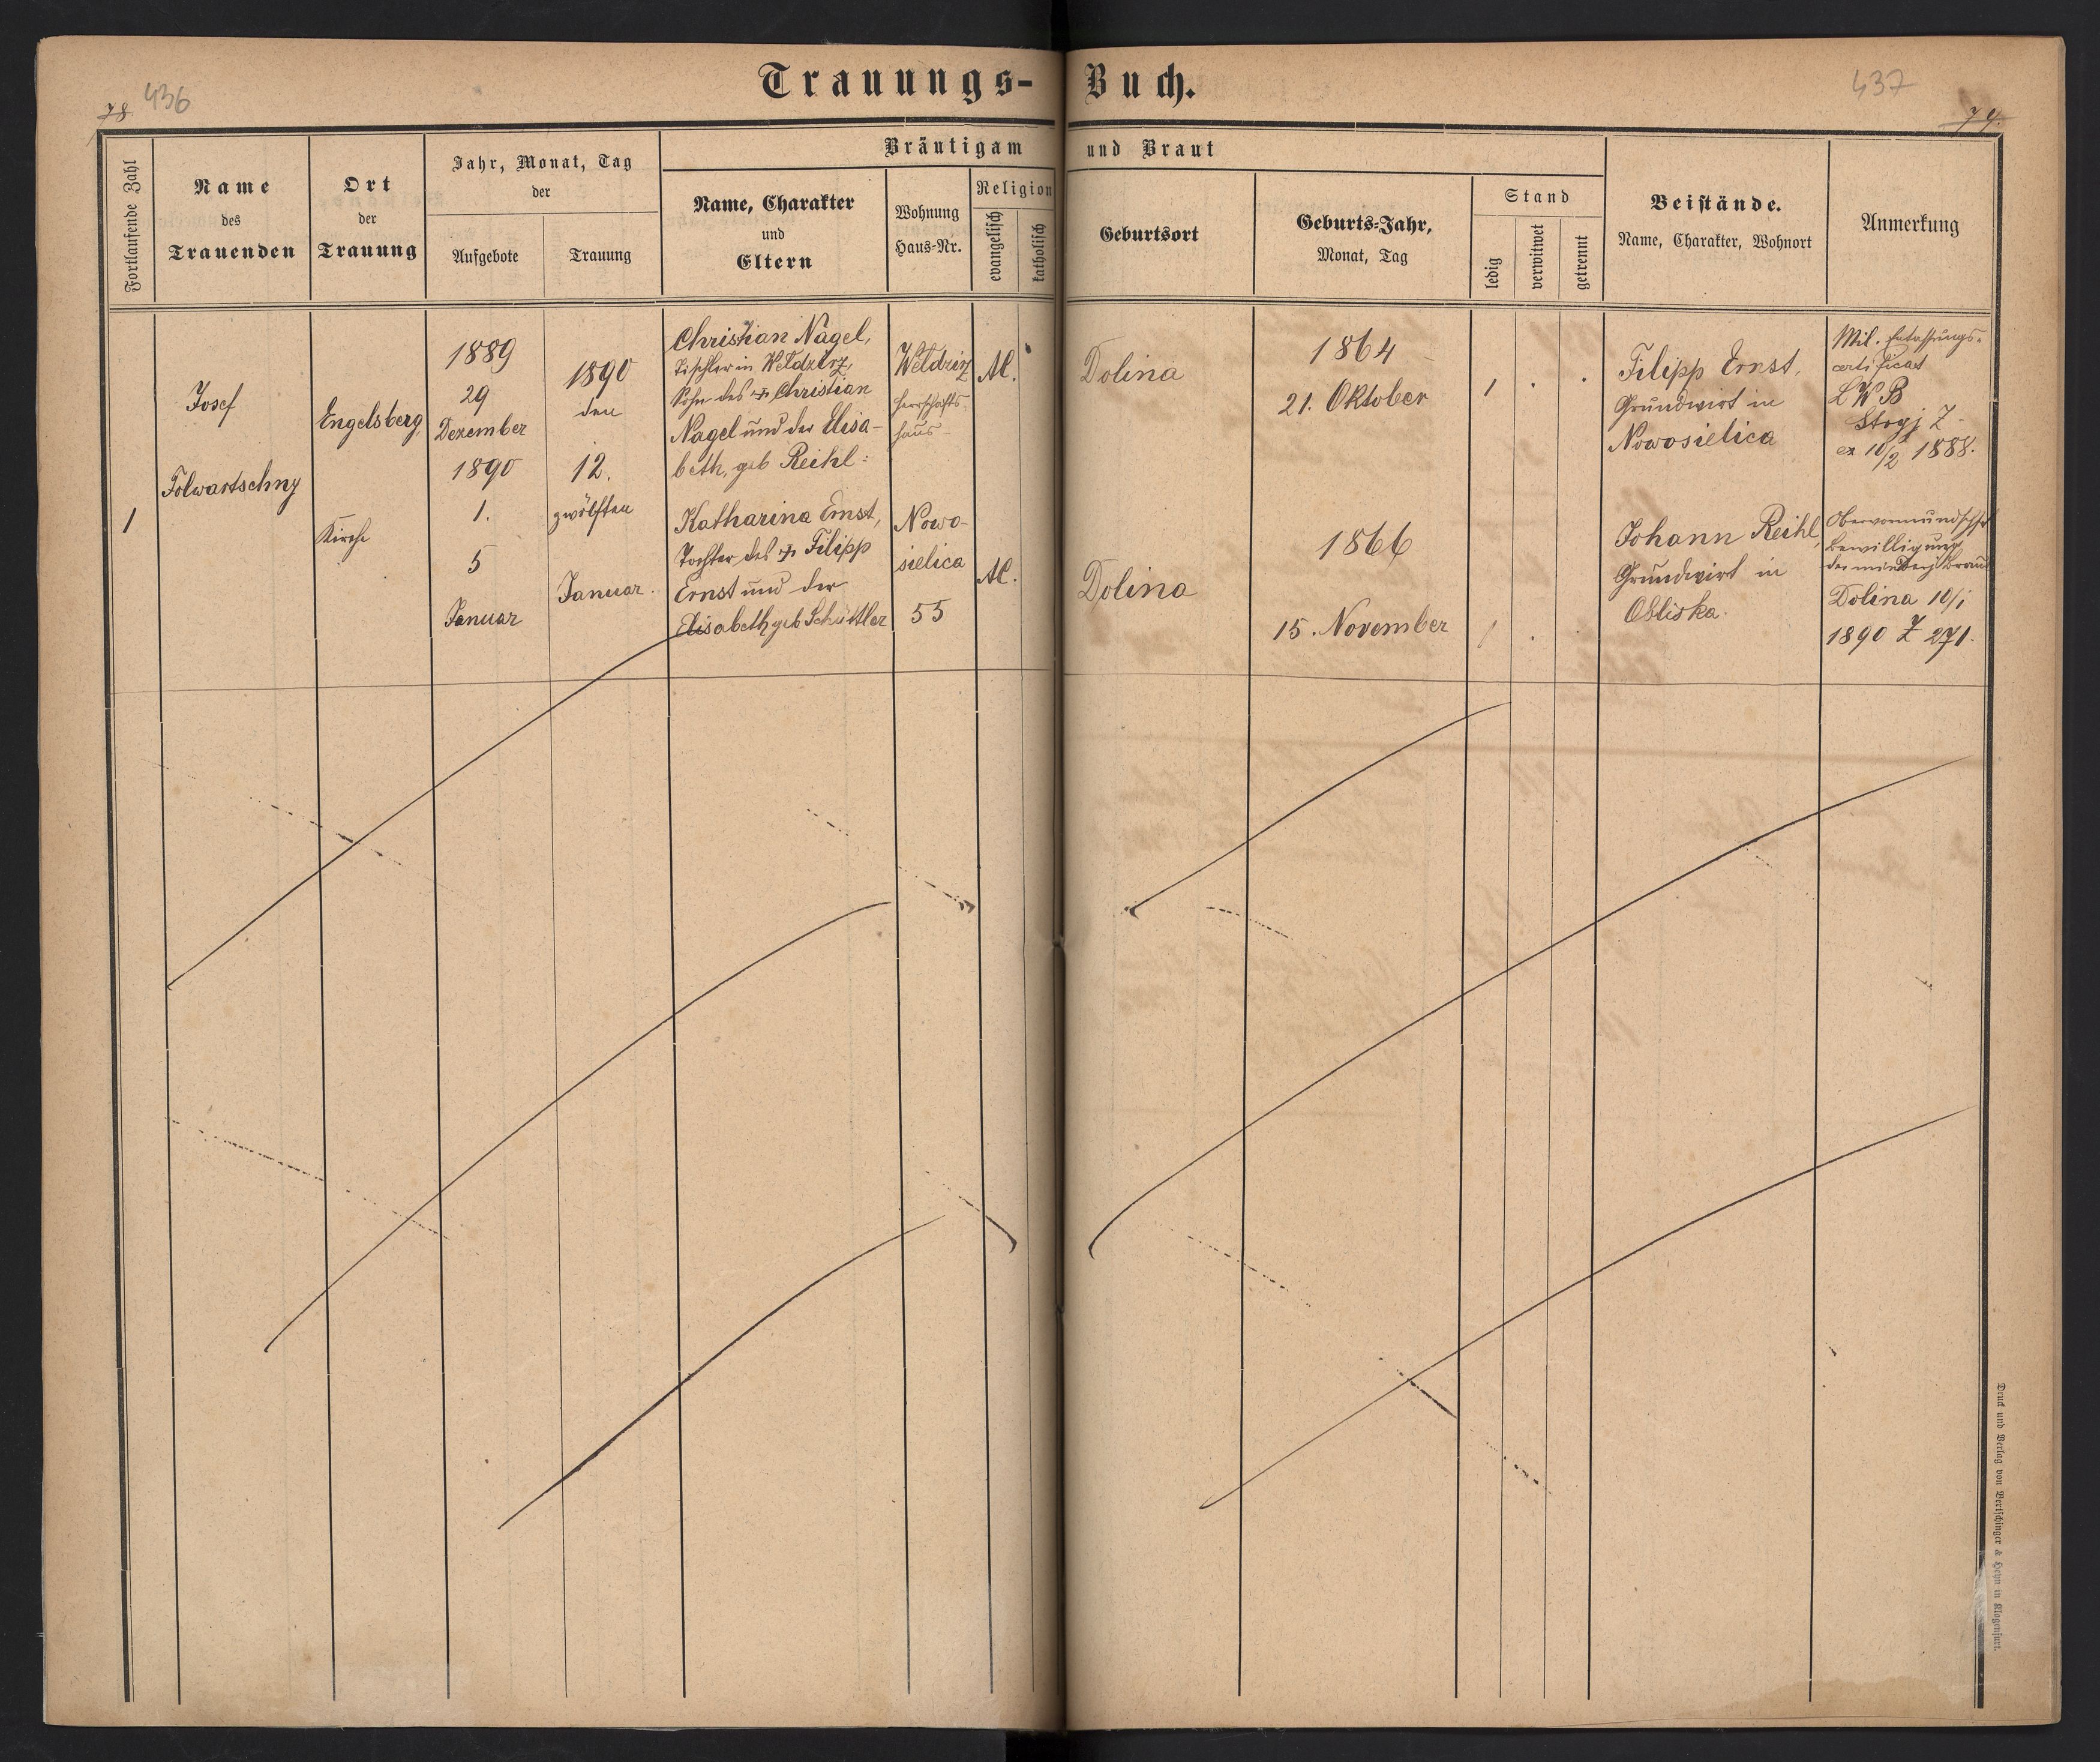 Trauungs- Buch.
78 436
437
79.
Fortlaufende Zahl
Name
des
Trauenden
Ort
der
Trauung
Jahr, Monat, Tag
der
Aufgebote
Trauung
Bräutigam und Braut
Name, Charakter
und
Eltern
Wohnung
Haus-Nr.
Religion
evangelisch
katholisch
Geburtsort
Geburts-Jahr,
Monat, Tag
Stand
ledig
verwitwet
getrennt
Beistände.
Name, Charakter, Wohnort
Anmerkung
1
Josef
Folwartschny
Engelsberg,
Kirche
1889
29
Dezember
1890
1.
5
Januar
1890
den
12.
zwölften
Januar.
Christian Nagel,
Tischler in Weldzirz,
Sohn des + Christian
Nagel und der Elisa-
beth, geb Reihl:
Weldzirz
Herrschafts
haus
AC.
Dolina
1864
21. Oktober
1 . .
Filipp Ernst,
Grundwirt in
Nowosielica
Mil. Entassungs-
certificat
LWB
Stryj Z
ex 10/2 1888.
Katharina Ernst,
Tochter des + Filipp
Ernst und der
Elisabeth geb Schüttler
Nowo-
sielica
55
AC.
Dolina
1866
15. November
1 .
Johann Reihl,
Grundwirt in
Obliska.
Bewilligung
der Braut
Dolina 10/1
1890 Z 271.
Druck und Verlag von Bertschinger & Heyn in Klagenfurt.